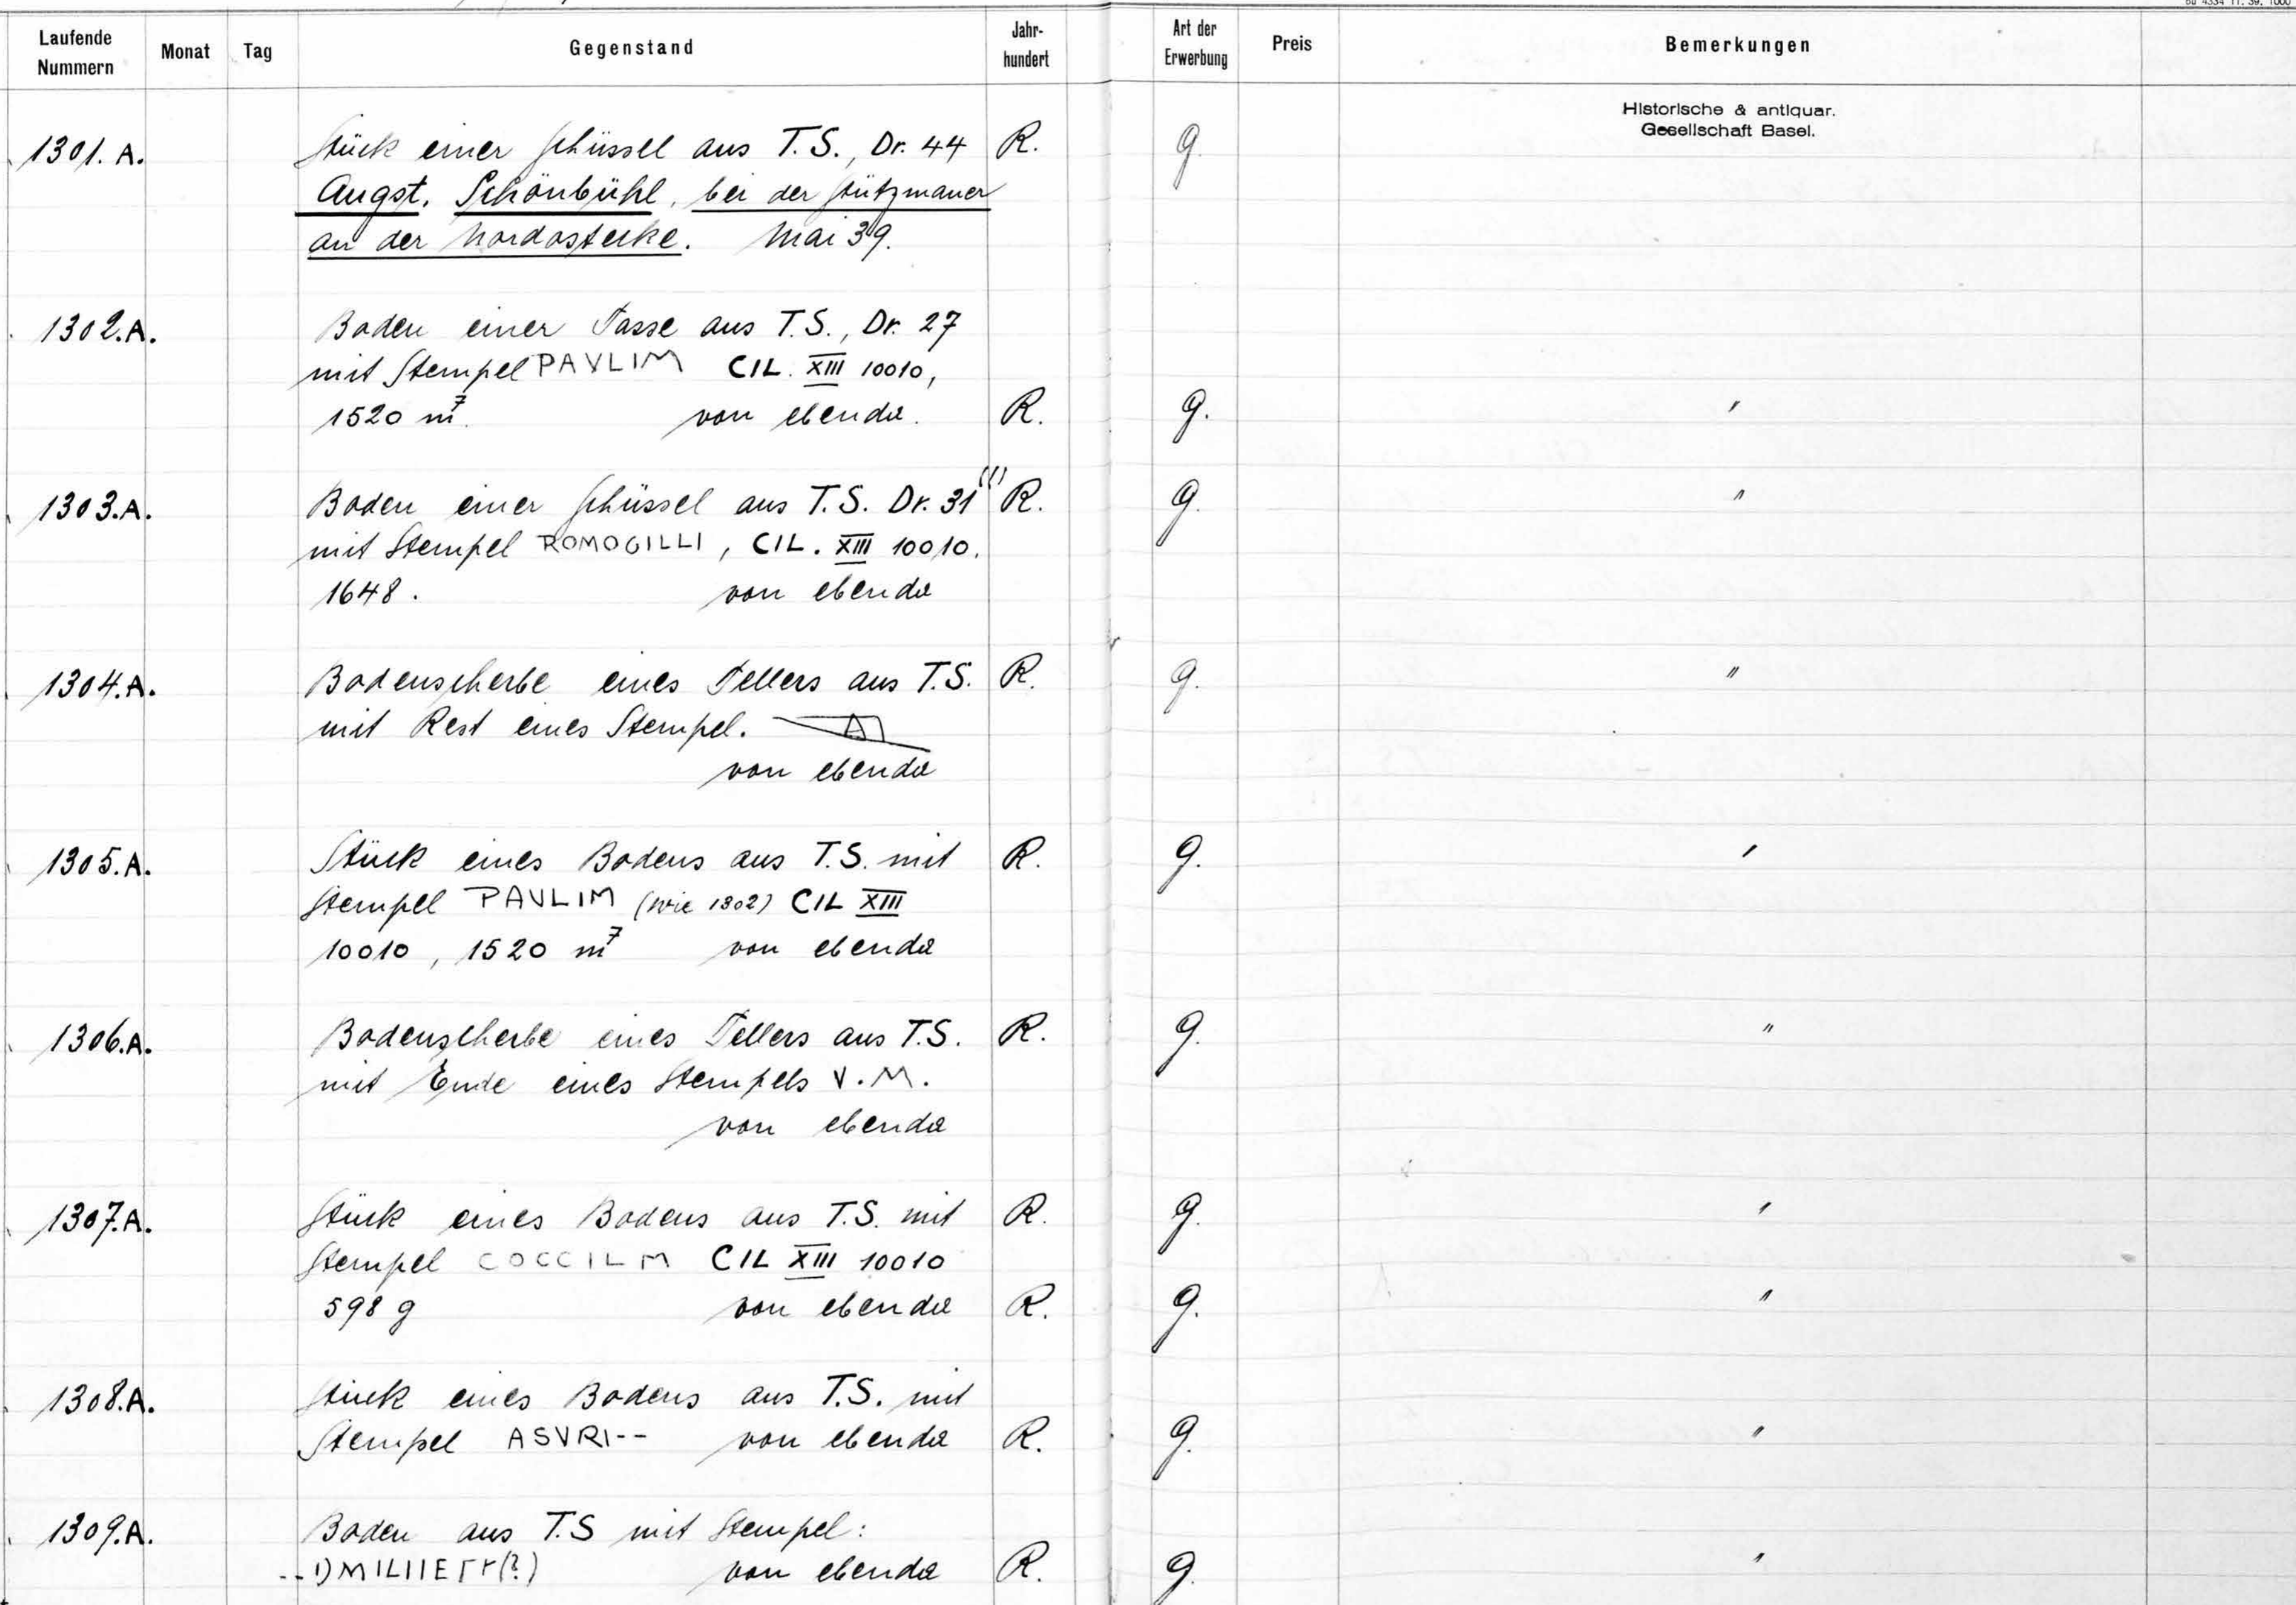 Laufende Nummern Monat Tag Gegenstand Jahr-hundert Art der Erwerbung Preis Bemerkungen
Historische & antiquar.
Gesellschaft Basel.
1301. A. Stück einer Schüssel aus T.S., Dr. 44 R. g.
Augst. Schönbühl, bei der Stützmauer
an der Nordostecke. Mai 39.
1302.A. Boden einer Tasse aus T.S., Dr. 27
mit Stempel PAVLIM CIL. XIII 10010,
1520 m⁷. von ebenda. R. g. "
1303.A. Boden einer Schüssel aus T.S. Dr. 31(!) R. g. "
mit Stempel ROMOGILLI, CIL. XIII 10010.
1648. von ebenda
1304.A. Bodenscherbe eines Tellers aus T.S. R. g. "
mit Rest eines Stempel. A
von ebenda
1305.A. Stück eines Bodens aus T.S. mit R. g. "
Stempel PAVLIM (wie 1302) CIL XIII
10010, 1520 m⁷ von ebenda
1306.A. Bodenscherbe eines Tellers aus T.S. R. g. "
mit Ende eines Stempels V.M.
von ebenda
1307.A. Stück eines Bodens aus T.S. mit R. g. "
Stempel COCCILM CIL XIII 10010
598 g von ebenda R. g. "
1308.A. Stück eines Bodens aus T.S. mit
Stempel ASVRI-- von ebenda R. g. "
1309.A. Boden aus T.S mit Stempel:
von ebenda R. g. "